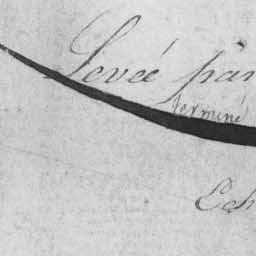 Levée par
terminé
Ech